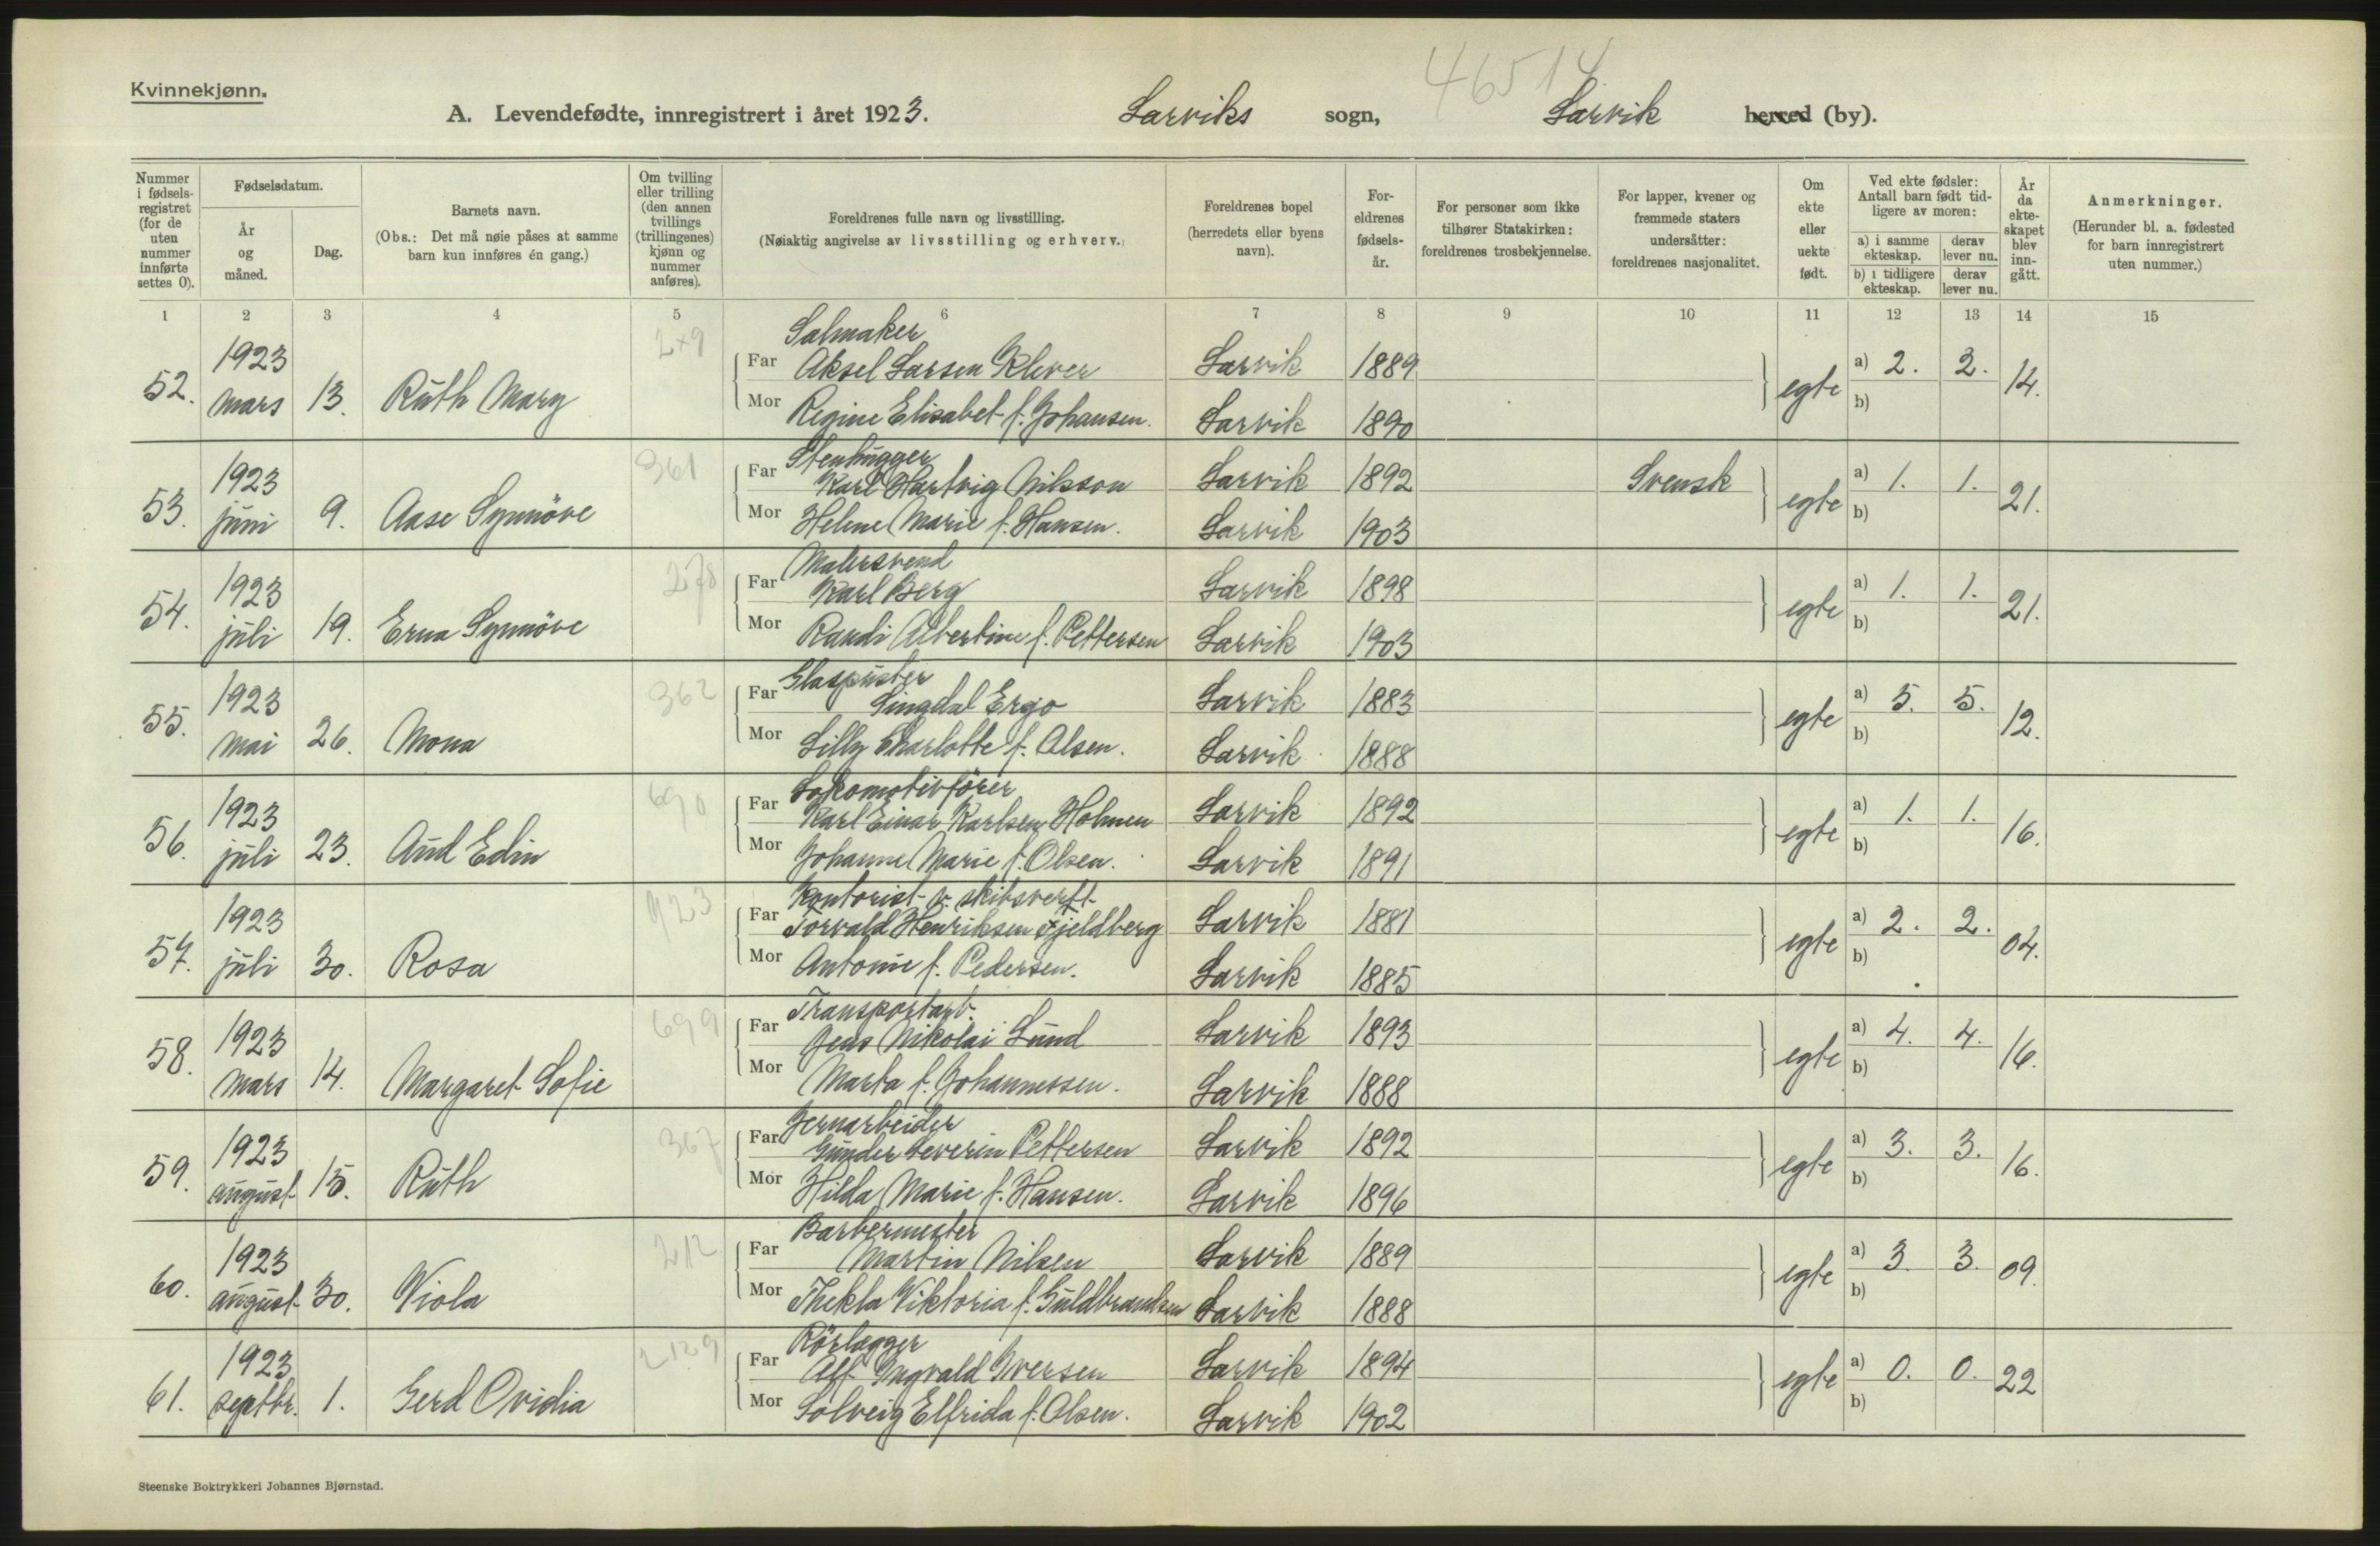 46514
Kvinnekjønn.
A. Levendefødte, innregistrert i året 1923. Larviks sogn, Larvik herred (by).
Nummer i fødsels-registret (for de uten nummer innførte settes 0).
Fødselsdatum.
År og måned.
Dag.
Barnets navn.
(Obs.: Det må nøie påses at samme barn kun innføres én gang.)
Om tvilling eller trilling (den annen tvillings (trillingenes) kjønn og nummer anføres).
Foreldrenes fulle navn og livsstilling.
(Nøiaktig angivelse av livsstilling og erhverv.)
Foreldrenes bopel (herredets eller byens navn).
For-eldrenes fødsels-år.
For personer som ikke tilhører Statskirken: foreldrenes trosbekjennelse.
For lapper, kvener og fremmede staters undersåtter: foreldrenes nasjonalitet.
Om ekte eller uekte født.
Ved ekte fødsler: Antall barn født tid-ligere av moren:
a) i samme ekteskap. derav lever nu.
b) i tidligere ekteskap. derav lever nu.
År da ekte-skapet blev inn-gått.
Anmerkninger.
(Herunder bl. a. fødested for barn innregistrert uten nummer.)
1 2 3 4 5 6 7 8 9 10 11 12 13 14 15
Salmaker
52. 1923 mars 13. Ruth Mary
Far Aksel Larsen Klever Larvik 1889 egte a) 2. 2. 14.
Mor Regine Elisabet f. Johansen. Larvik 1890 b)
Stenhugger
53. 1923 juni 9. Aase Synnöve 361
Far Karl Hartvig Nilsson Larvik 1892 Svensk egte a) 1. 1. 21.
Mor Helene Marie f. Hansen. Larvik 1903 b)
Malersvend
54. 1923 juli 19. Erna Synnöve 278
Far Karl Berg Larvik 1898 egte a) 1. 1. 21.
Mor Randi Albertine f. Pettersen Larvik 1903 b)
Glaspuster
55. 1923 mai 26. Mona 362
Far Singdal Ergo Larvik 1883 egte a) 5. 5. 12.
Mor Lilly Charlotte f. Olsen. Larvik 1888 b)
Lokomotivförer
56. 1923 juli 23. Aud Edin 690
Far Karl Einar Karlsen Holmen Larvik 1892 egte a) 1. 1. 16.
Mor Johanne Marie f. Olsen. Larvik 1891 b)
Kontorist v. skibsverft
57. 1923 juli 30. Rosa 923
Far Torvald Henriksen Fjeldberg Larvik 1881 egte a) 2. 2. 04.
Mor Antonie f. Pedersen. Larvik 1885 b)
Transportarb.
58. 1923 mars 14. Margaret Sofie 699
Far Jens Nikolai Lund Larvik 1893 egte a) 4. 4. 16.
Mor Marta f. Johannessen. Larvik 1888 b)
Jernarbeider
59. 1923 august 15. Ruth 367
Far Gunder Severin Pettersen Larvik 1892 egte a) 3. 3. 16.
Mor Hilda Marie f. Hansen. Larvik 1896 b)
Barbermester
60. 1923 august 30. Viola 212
Far Martin Nilsen Larvik 1889 egte a) 3. 3. 09.
Mor Thekla Viktoria f. Guldbrandsen Larvik 1888 b)
Rörlægger
61. 1923 septbr. 1. Gerd Ovidia
Far Alf Ingvald Iversen Larvik 1894 egte a) 0. 0. 22
Mor Solveig Elfrida f. Olsen. Larvik 1902 b)
Steenske Boktrykkeri Johannes Bjørnstad.